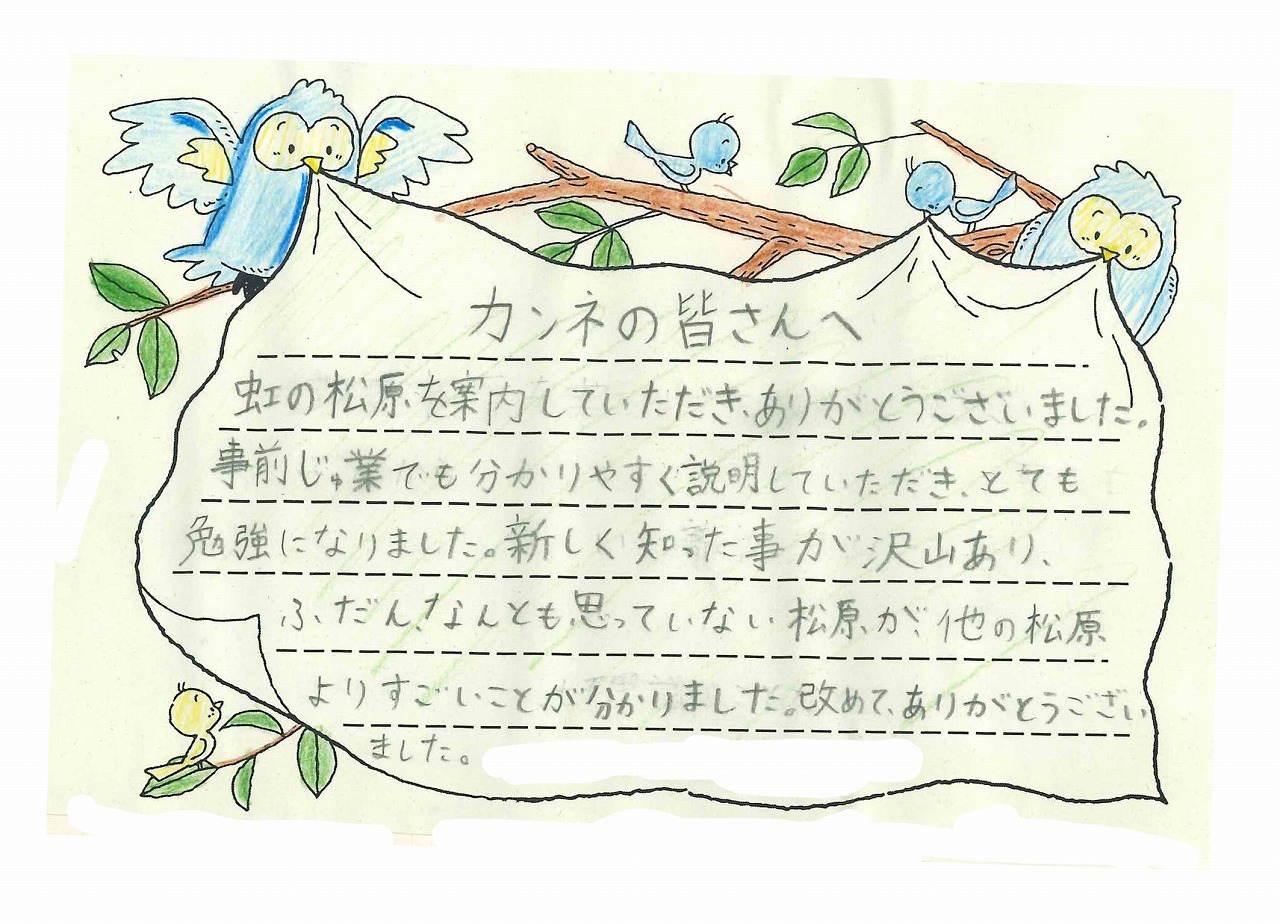 カンネの皆さんへ
虹の松原を案内していただき、ありがとうございました。
事前じゅ業でも分かりやすく説明していただき、とても
勉強になりました。新しく知った事が沢山あり、
ふだん、なんとも思っていない松原が、他の松原
よりすごいことが分かりました。改めて、ありがとうござい
ました。